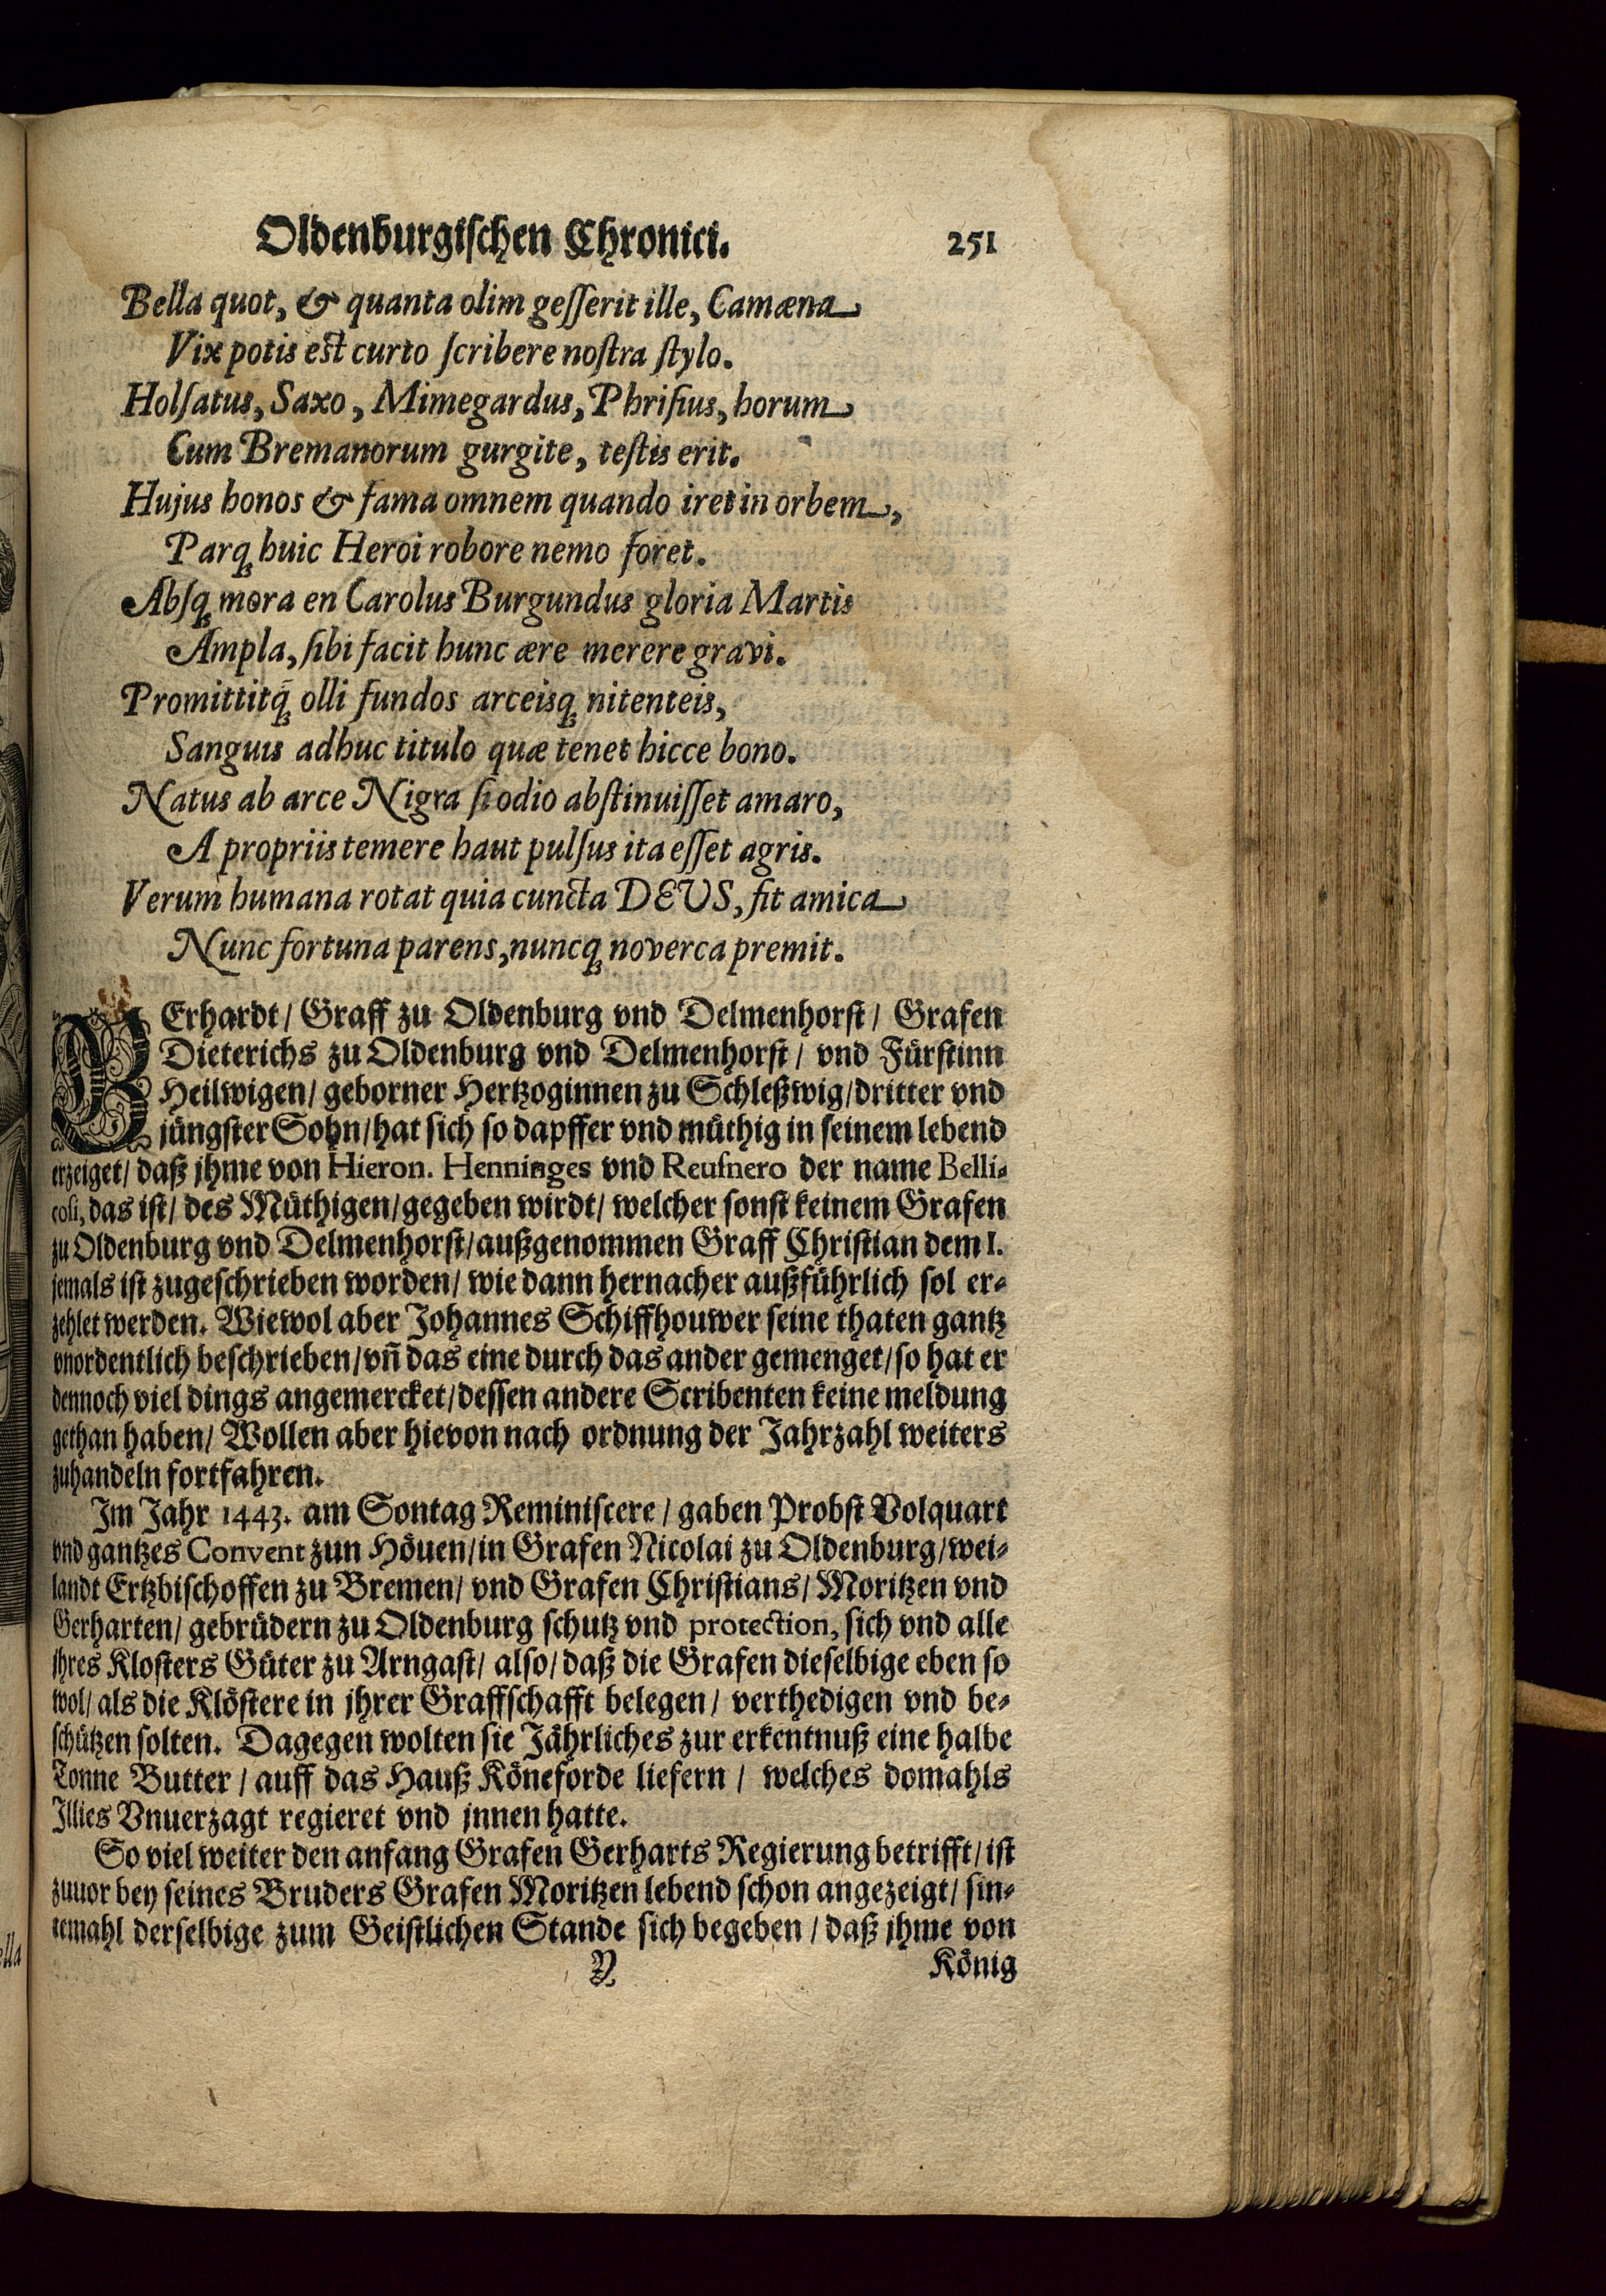 Oldenburgischen Chronici. 251
Bella quot, & quanta olim gesserit ille, Camæna
Vix potis est curto scribere nostra stylo.
Holsatus, Saxo, Mimegardus, Phrisius, horum
Cum Bremanorum gurgite, testis erit.
Hujus honos & fama omnem quando iret in orbem,
Parq́ huic Heroi robore nemo foret.
Absq́ mora en Carolus Burgundus gloria Martis
Ampla, sibi facit hunc ære merere gravi.
Promittitq́ olli fundos arceisq́ nitenteis,
Sanguis adhuc titulo quæ tenet hicce bono.
Natus ab arce Nigra si odio abstinuisset amaro,
A propriis temere haut pulsus ita esset agris.
Verum humana rotat quia cuncta DEUS, fit amica
Nunc fortuna parens, nuncq́ noverca premit.
GErhardt / Graff zu Oldenburg vnd Delmenhorst / Grafen
Dieterichs zu Oldenburg vnd Delmenhorst / vnd Fürstinn
Heilwigen / geborner Hertzoginnen zu Schleßwig / dritter vnd
jüngster Sohn / hat sich so dapffer vnd müthig in seinem lebend
erzeiget / daß jhme von Hieron. Henninges vnd Reusnero der name Belli-
cosi, das ist / des Müthigen / gegeben wirdt / welcher sonst keinem Grafen
zu Oldenburg vnd Delmenhorst / außgenommen Graff Christian dem I.
jemals ist zugeschrieben worden / wie dann hernacher außführlich sol er-
zehlet werden. Wiewol aber Johannes Schiffhouwer seine thaten gantz
vnordentlich beschrieben / vñ das eine durch das ander gemenget / so hat er
dennoch viel dings angemercket / dessen andere Scribenten keine meldung
gethan haben / Wollen aber hievon nach ordnung der Jahrzahl weiters
zuhandeln fortfahren.
Im Jahr 1443. am Sontag Reminiscere / gaben Probst Volquart
vnd gantzes Convent zun Höuen / in Grafen Nicolai zu Oldenburg / wei-
landt Ertzbischoffen zu Bremen / vnd Grafen Christians / Moritzen vnd
Gerharten / gebrüdern zu Oldenburg schutz vnd protection, sich vnd alle
jhres Klosters Güter zu Arngast / also / daß die Grafen dieselbige eben so
wol / als die Klöstere in jhrer Graffschafft belegen / verthedigen vnd be-
schützen solten. Dagegen wolten sie Jährliches zur erkentnuß eine halbe
Tonne Butter / auff das Hauß Köneforde liefern / welches domahls
Illies Vnuerzagt regieret vnd jnnen hatte.
So viel weiter den anfang Grafen Gerharts Regierung betrifft / ist
zuuor bey seines Bruders Grafen Moritzen lebend schon angezeigt / sin-
temahl derselbige zum Geistlichen Stande sich begeben / daß jhme von
Y König